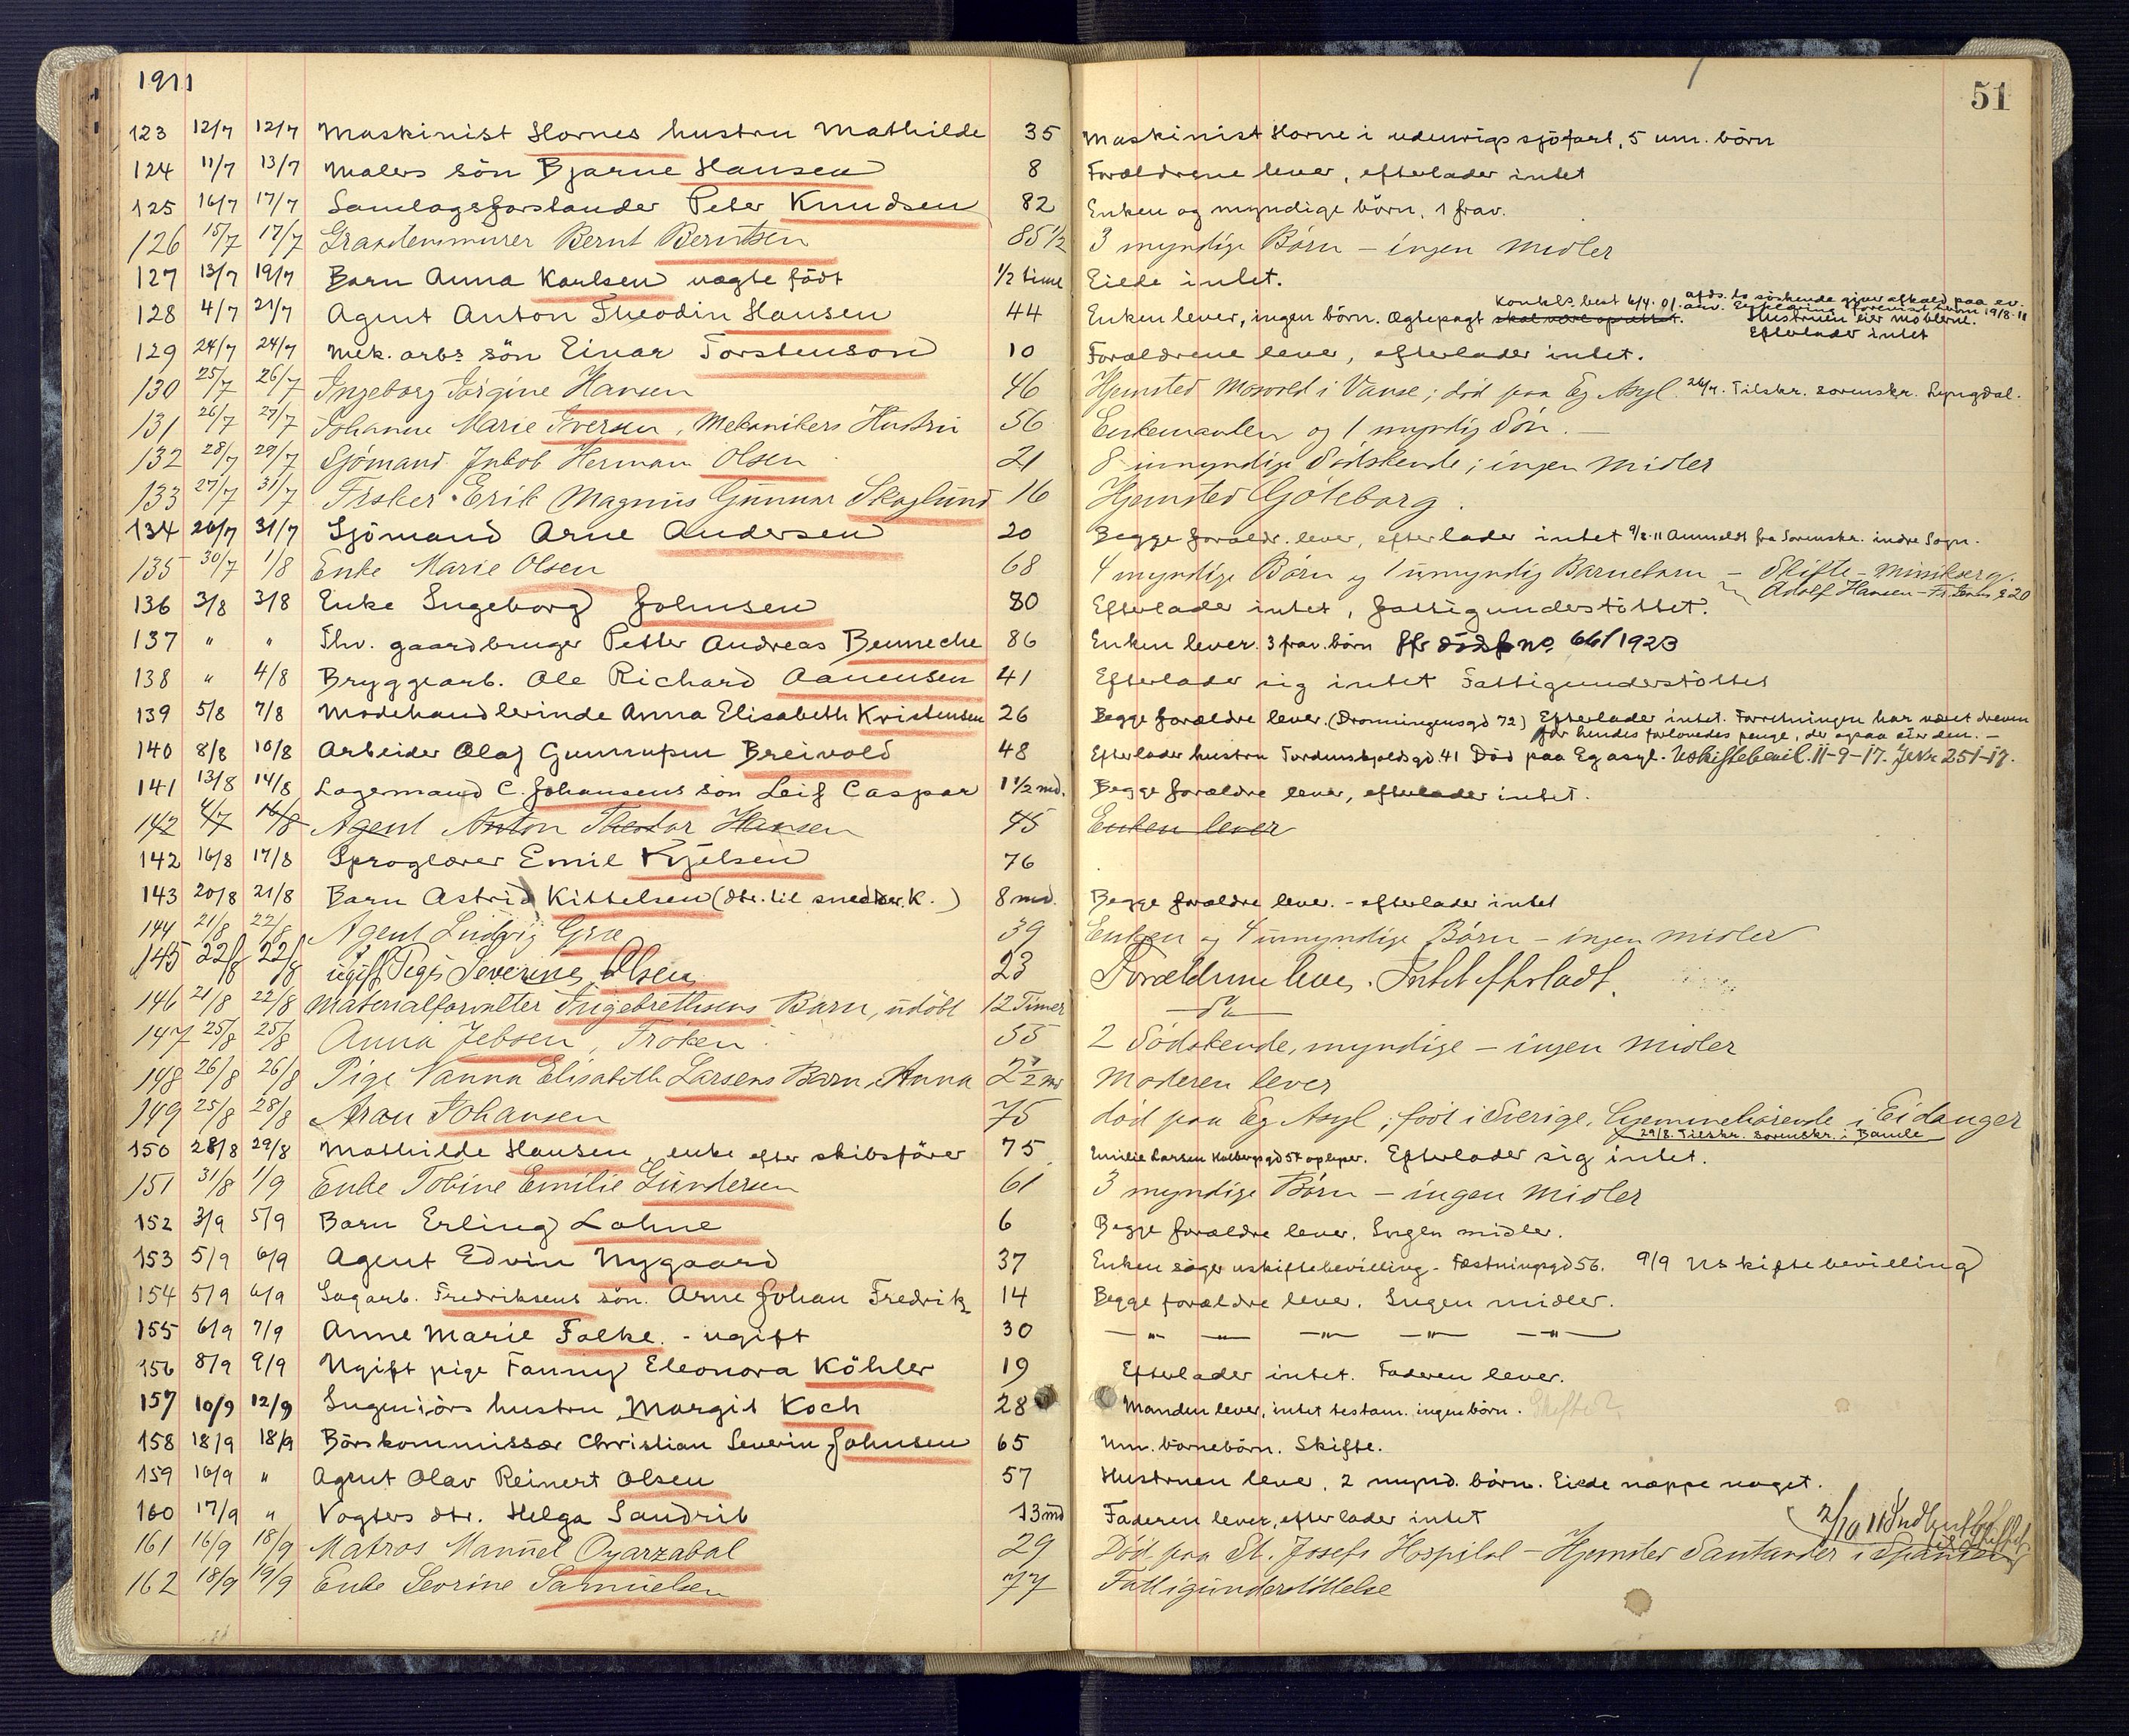 1911
51
123 12/7 12/7 Maskinist Hornes hustru Mathilde 35 Maskinist Horne i udenrigs sjöfart, 5 um. börn
124 11/7 13/7 Malers sön Bjarne Hansen 8 Forældrene lever, efterlader intet
125 16/7 17/7 Samlagsforstander Peter Knudsen 82 Enken og myndige börn, 1 frav.
126 15/7 17/7 Bernt Berntsen 85 1/2 3 myndige Börn – ingen Midler
127 13/7 19/7 Barn Anna Karlsen uægte födt 1/2 time Eiede intet.
128 4/7 21/7 Agent Anton Theodin Hansen 44 Enken lever, ingen börn. Ægtepagt skal være oprettet. Konkls. best 6/4.01.
Hustruen eier møblerne.
Efterlader intet
129 24/7 24/7 Mek. arbs sön Einar Torstenson 10 Forældrene lever, efterlader intet.
130 25/7 26/7 Ingeborg Jörgine Hansen 46 Hjemsted Mosvold i Vanse; död paa Eg Asyl. 26/7. Tilskr. sorenskr. Lyngdal.
131 26/7 27/7 Johanne Marie Iversen, Mekanikers Hustru 56 Enkemanden og 1 myndig Sön. –
132 28/7 29/7 Sjömand Jakob Herman Olsen 21 8 umyndige Södskende; ingen Midler
133 27/7 31/7 Fisker Erik Magnus Gunnar Skoglund 16 Hjemsted Göteborg.
134 26/7 31/7 Sjömand Arne Andersen 20 Begge forældr. lever, efterlader intet 9/8.11 Anmeldt fra Sorenskr. indre Sogn.
135 30/7 1/8 Enke Marie Olsen 68 4 myndige Börn og 1 umyndig Barnebarn – Skifte –
Adolf Hansen
136 3/8 3/8 Enke Ingeborg Johnsen 80 Efterlader intet, fattigunderstöttet.
137 " " Fhv. gaardbruger Petter Andreas Benneche 86 Enken lever. 3 frav. börn jfr dödsf no 661/1923
138 " 4/8 Bryggearb. Ole Richard Aanensen 41 Efterlader sig intet Fattigunderstöttet
139 5/8 7/8 Modehandlerinde Anna Elisabeth Kristensen 26 Begge forældre lever. (Dronningensgd 72) Efterlader intet. Forretningen har været dreven
for hendes forlovedes penge, der ogsaa eier den. –
140 8/8 10/8 Arbeider Olaf Gunnupsen Breivold 48 Efterlader hustru Tordenskjoldsgd. 41 Död paa Eg asyl. Uskiftebevil. 11-9-17. 251-17.
141 13/8 14/8 Lagermand C. Johansens sön Leif Caspar 1 1/2 md. Begge forældre lever, efterlader intet.
142 4/7 16/8 Agent Anton Theodor Hansen 45 Enken lever
142 16/8 17/8 Sproglærer Emil Kjelsen 76
143 20/8 21/8 Barn Astrid Kittelsen (dtr. til snedker K.) 8 md. Begge forældre lever. – efterlader intet
144 21/8 22/8 Agent Ludvig Gra 39 Enken og 4 umyndige Börn – ingen Midler
145 22/8 22/8 ugift Pige Severine Olsen 23 Forældrene lever. Intet efterladt.
146 21/8 22/8 Materialforvalter Ingebrethsens Barn, udöbt 12 Timer – " –
147 25/8 25/8 Anna Jebsen, Fröken 55 2 Södskende, myndige – ingen Midler
148 26/8 26/8 Pige Nanna Elisabeth Larsens Barn, Anna 2 1/2 md Moderen lever
149 25/8 28/8 Aran Johansen 75 död paa Eg Asyl; födt i Sverige, hjemmehörende i Eidanger
29/8. Tilskr. sorenskr. i Bamle
150 28/8 29/8 Mathilde Hansen, enke efter skibsförer 75 Emilie Larsen Holbergsgd 54 oplyser. Efterlader sig intet.
151 31/8 1/9 Enke Tobine Emilie Gundersen 61 3 myndige Börn – ingen Midler
152 3/9 5/9 Barn Erling Lohne 6 Begge forældre lever. Ingen midler.
153 5/9 6/9 Agent Edvin Nygaard 37 Enken söger uskiftebevilling. Fæstningsgd 56. 9/9 Uskiftebevilling
154 5/9 6/9 Sagarb. Fredriksens sön. Arne Johan Fredrik 14 Begge forældre lever. Ingen midler.
155 6/9 7/9 Anne Marie Falke. – ugift 30 – " – – " – – " – – " –
156 8/9 9/9 Ugift pige Fanny Eleonora Köhler 19 Efterlader intet. Faderen lever.
157 10/9 12/9 Ingeniörs hustru Margit Koch 28 Manden lever, intet testam. ingen börn. Skifte?
158 18/9 18/9 Börskommissær Christian Severin Johnsen 65 Um. börnebörn. Skifte.
159 16/9 " Agent Olav Reinert Olsen 57 Hustruen lever, 2 mynd. börn. Eiede næppe noget.
160 17/9 " Vogters dtr. Helga Sandrib 13 md Faderen lever, efterlader intet
161 16/9 18/9 Matros Manuel Oyarzabal 29 Död paa St. Josefs Hospital – Hjemsted Santander i Spanien
2/10 11
162 18/9 19/9 Enke Severine Samuelsen 77 Fattigunderstöttelse